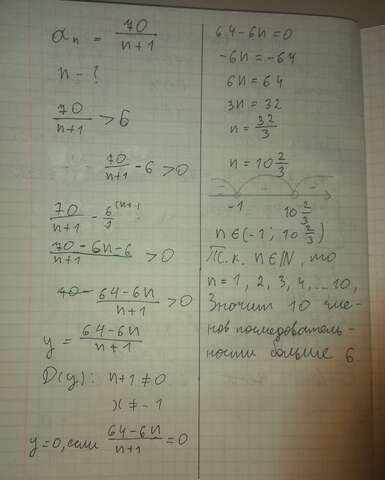 aₙ = 70/(n+1)
n - ?
70/(n+1) > 6
70/(n+1) - 6 > 0
70/(n+1) - 6/1 (n+1
(70-6n-6)/(n+1) > 0
(64-6n)/(n+1) > 0
y = (64-6n)/(n+1)
D(y): n+1 ≠ 0
x ≠ -1
y=0, если (64-6n)/(n+1) = 0
64-6n=0
-6n=-64
6n=64
3n=32
n=32/3
n=10 2/3
- + -
-1 10 2/3
n∈(-1; 10 2/3)
Т.к. n∈N, то
n=1, 2, 3, 4, ... 10,
Значит 10 чле-
нов последователь-
ности больше 6